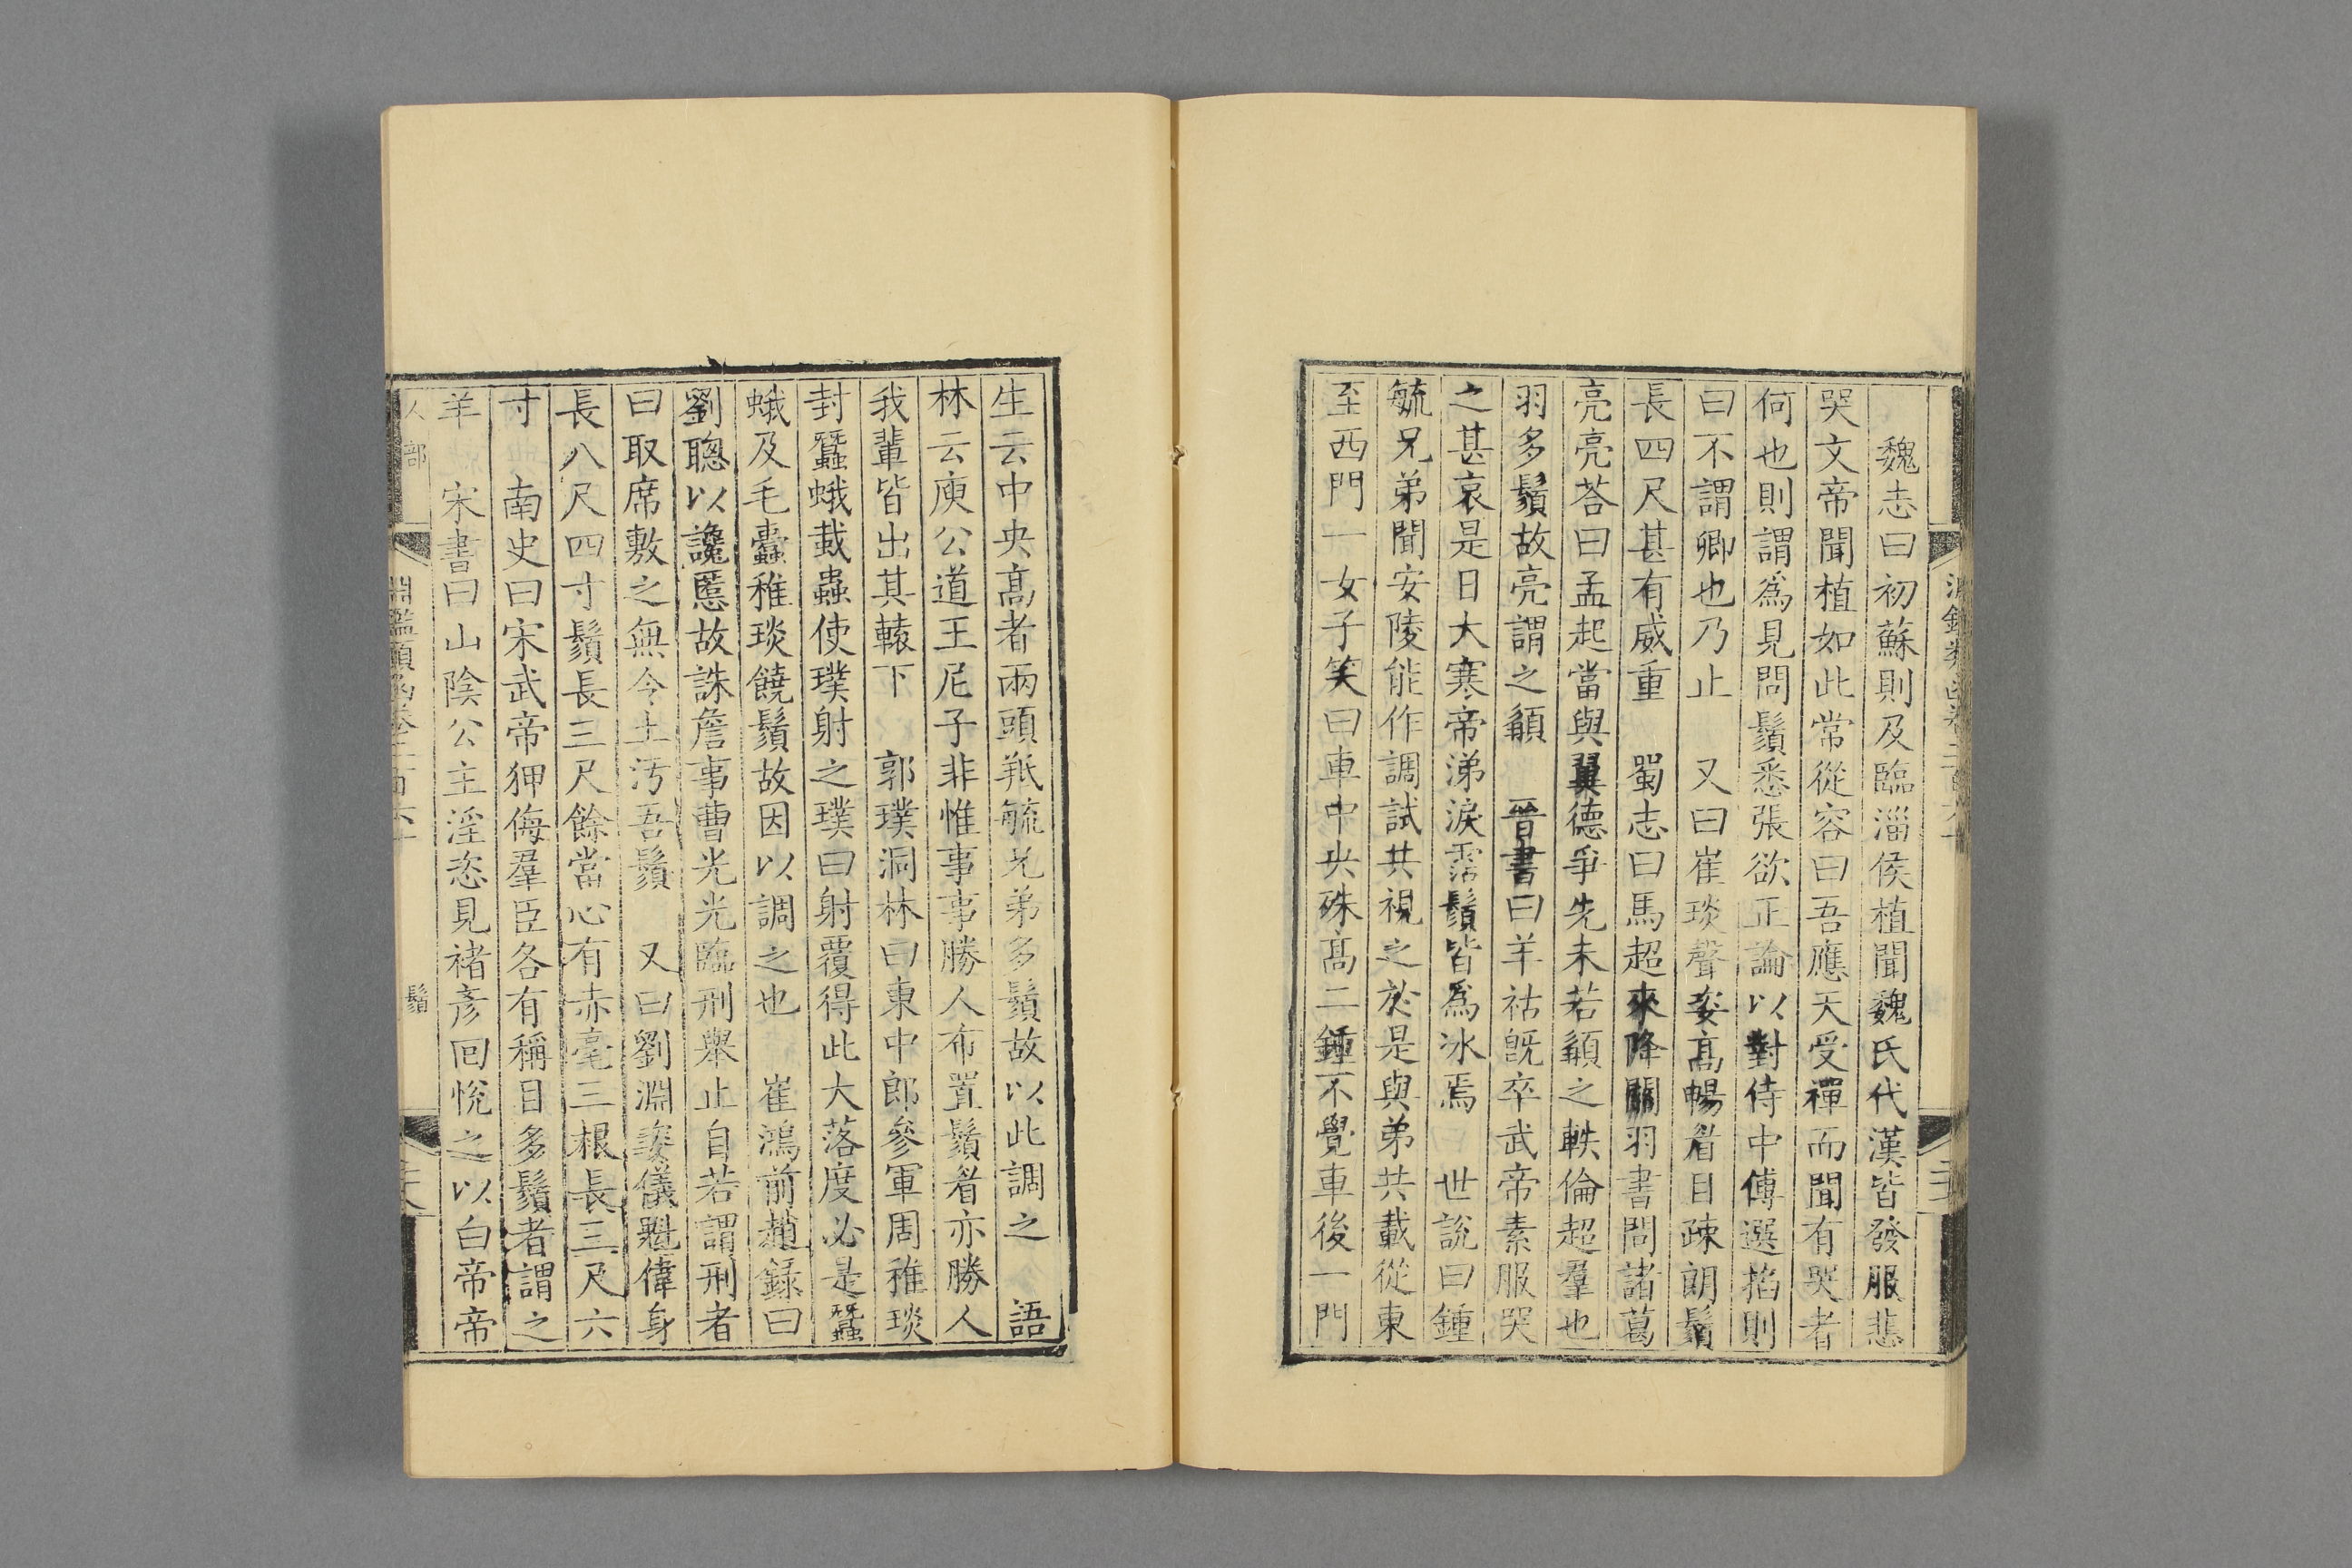 魏志曰初蘇則及臨淄侯植聞魏氏代漢皆發服悲
哭文帝聞植如此常從容曰吾應天受禪而聞有哭者
何也則謂爲見問鬚悉張欲正論以對侍中傅選掐則
曰不謂卿也乃止　又曰崔琰聲姿高暢眉目疎朗鬚
長四尺甚有威重　蜀志曰馬超來降關羽書問諸葛
亮亮荅曰孟起當與翼德爭先未若顧之軼倫超羣也
羽多鬚故亮謂之顧　晉書曰羊祜旣卒武帝素服哭
之甚哀是日大寒帝涕淚霑鬚皆爲冰焉　世說曰鍾
毓兄弟聞安陵能作調試共視之於是與弟共載從東
至西門一女子笑曰車中央殊高二鍾不覺車後一門
生云中央高者兩頭羝毓兄弟多鬚故以此調之　語
林云庾公道王尼子非惟事事勝人布置鬚眉亦勝人
我輩皆出其轅下　郭璞洞林曰東中郎參軍周稚琰
封蠶蛾蛓蟲使璞射之璞曰射覆得此大落度必是蠶
蛾及毛蠹稚琰饒鬚故因以調之也　崔鴻前趙錄曰
劉聰以讒慝故誅詹事曹光光臨刑舉止自若謂刑者
曰取席敷之無令土汚吾鬚　又曰劉淵姿儀魁偉身
長八尺四寸鬚長三尺餘當心有赤毫三根長三尺六
寸　南史曰宋武帝狎侮羣臣各有稱目多鬚者謂之
羊　宋書曰山陰公主淫恣見褚彥回悅之以白帝帝
人部　淵鑑類函卷二百六十　鬚